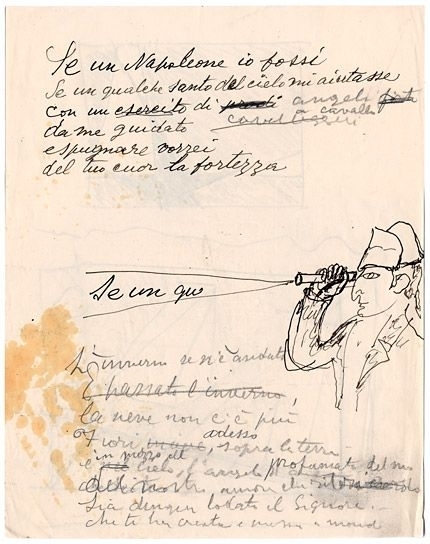 Se un Napoleone io fossi
Se un qualche santo del cielo mi aiutasse
con un esercito di prodi angeli
a cavallo
da me guidato
espugnare vorrei
del tuo cuor la fortezza
Se un qu
L'inverno se n'è andato
È passato l'inverno,
la neve non c'è più
adesso
Fiori sopra la terra
in mezzo al
cielo profumati del mio
amor che
Sia dunque lodato il Signore
che ti ha creata e messa al mondo